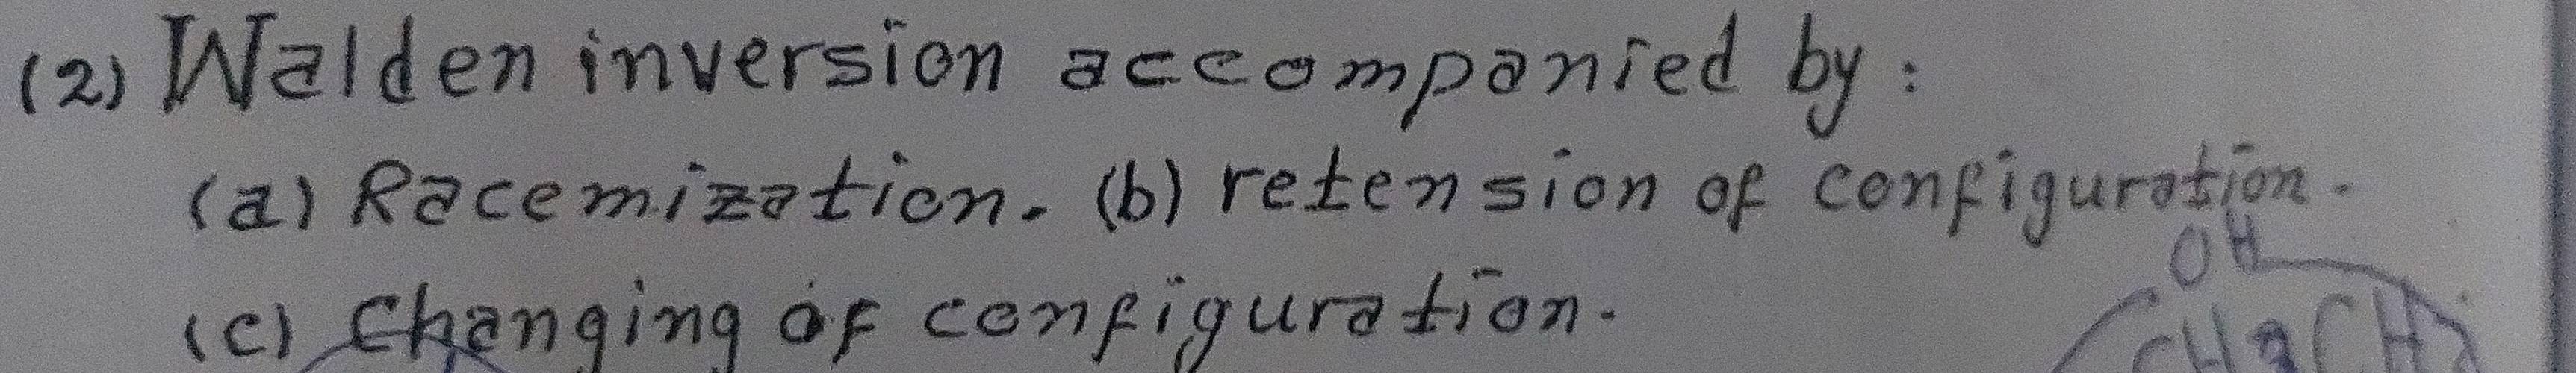 (2) Walden inversion accompanied by:
(a) Racemization. (b) retension of configuration.
(c) Changing of configuration.
OH
CH2CH2